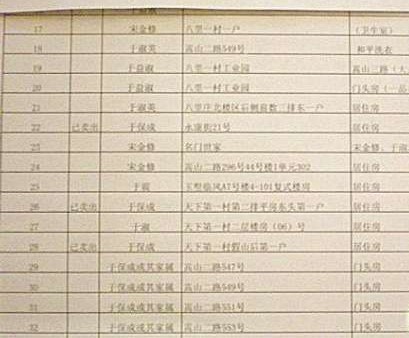 17 宋金修 八里一村一户 （卫生室）
18 于淑英 嵩山二路549号 和平洗衣
19 于益淑 八里一村工业园 嵩山三路（大
20 于益淑 八里一村工业园 门头房（一品
21 于淑英 八里庄北楼区后侧前数三排东一户 居住房
22 已卖出 于保成 永康街21号 居住房
23 宋金修 名门世家 宋金修、于淑
24 宋金修 嵩山二路296号44号楼1单元302 居住房
25 于淑 玉墅临风A7号楼4-101复式楼房 居住房
26 已卖出 于保成 天下第一村第二排平房东头第一户 居住房
27 于淑 天下第一村二层楼房（06）号 居住房
28 已卖出 于保成 天下第一村假山后第一户 居住房
29 于保成或其家属 嵩山二路547号 门头房
30 于保成或其家属 嵩山二路549号 门头房
31 于保成或其家属 嵩山二路551号 门头房
32 于保成或其家属 嵩山二路553号 门头房